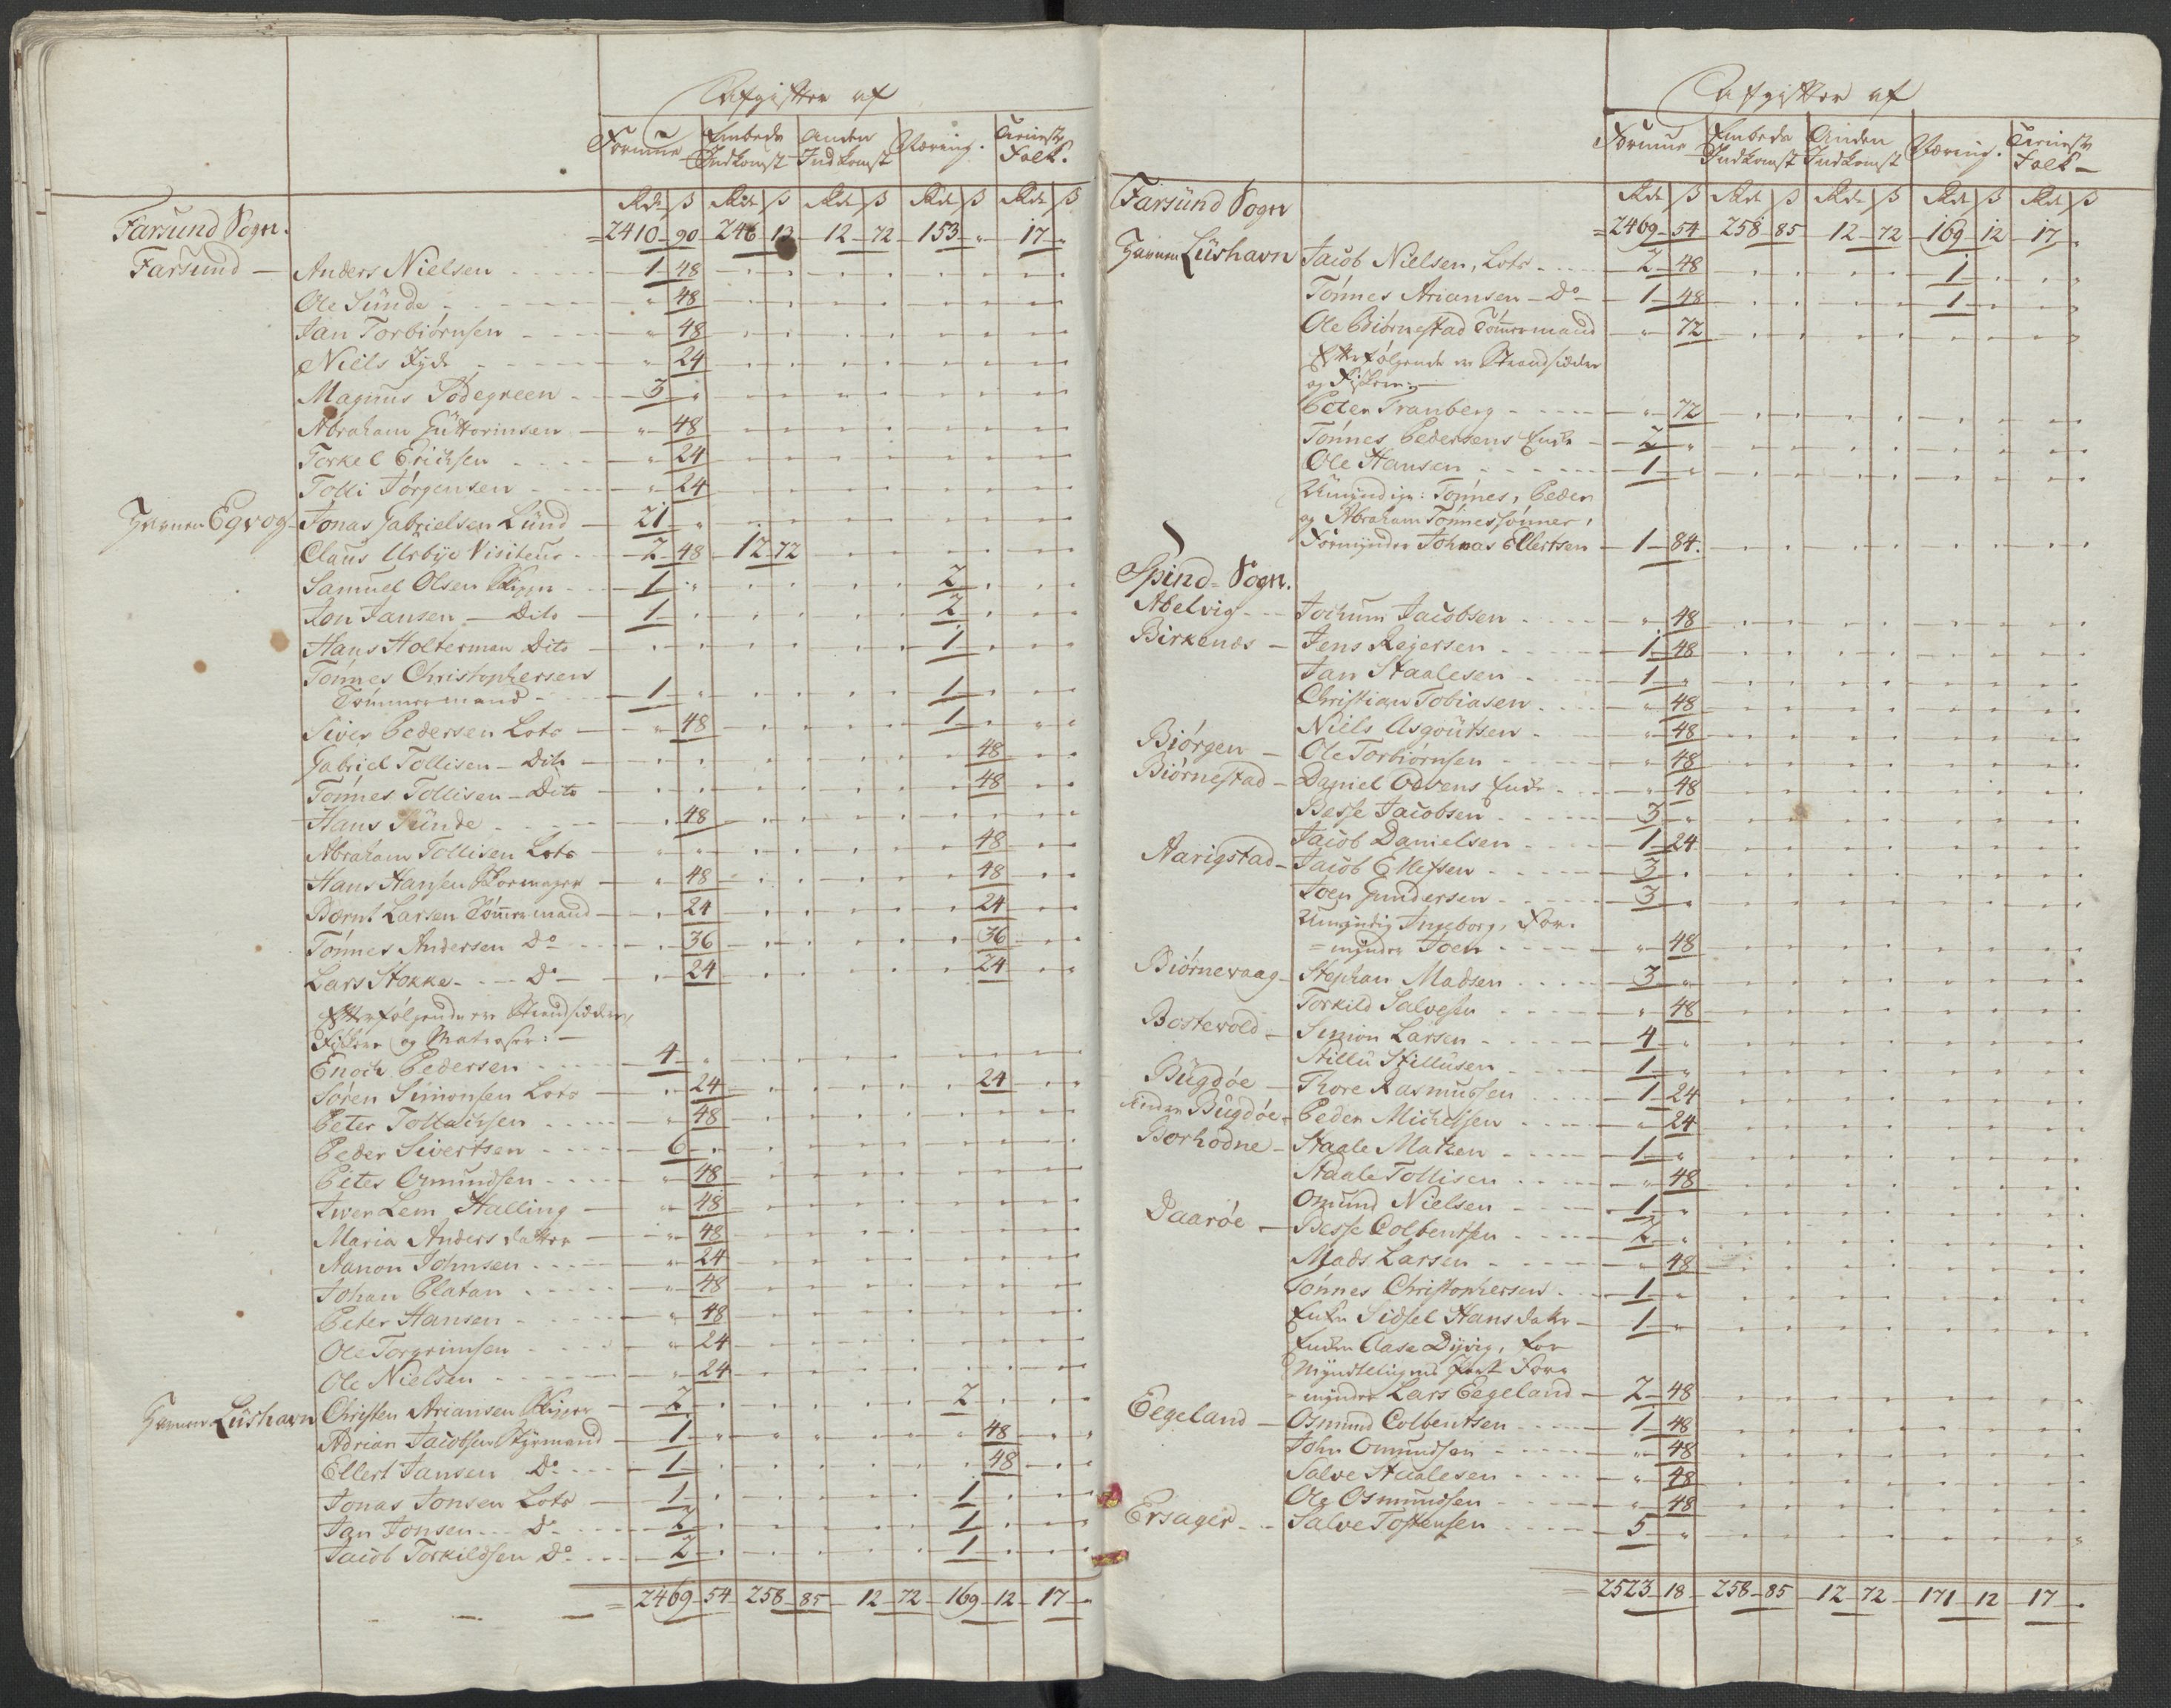 Afgifter af
Formue Embeds Indkomst Anden Indkomst Næring. Tieniste Folk.
Rd ß Rd ß Rd ß Rd ß Rd ß
Farsund Sogn. 2410 90 246 13 12 72 153 " 17 "
Farsund — Anders Nielsen 1 48
Ole Sünde " 48
Jan Torbiørnsen " 48
Niels Jyde " 24
Magnus Södegreen 3 "
Abraham Guttormsen " 48
Torkel Erichsen " 24
Tolli Jørgensen " 24
Havnen Egvog Jonas Gabrielsen Lünd 21 "
Claus Urbye Visiteur 2 48 12 72
Samuel Olsen Skipper 1 " 2
Jon Jansen — Dito 1 2
Hans Holterman Dito 1
Tönnes Christophersen
Tømmermand 1 " 1
Siver Pedersen Lots " 48 1
Gabriel Tollisen — Dito 48
Tönnes Tollisen — Dito 48
Hans Sünde " 48
Abraham Tollisen Lots 48
Hans Hansen Skomager " 48 48
Bernt Larsen Tömmermand " 24 24
Tönnes Andersen Do " 36 36
Lars Stokke — Do " 24 24
Efterfølgende ere Strandsidder,
Fiskere og Matroser: —
Enoch Pedersen 4 "
Søren Simonsen Lots " 24 24
Peter Tollachsen " 48
Peder Sivertsen 6
Peter Omundsen " 48
Iver Lem Halling " 48
Maria Andersdatter " 48
Aanon Johnsen " 24
Johan Platan " 48
Peter Hansen " 48
Ole Torgrimsen " 24
Ole Nielsen " 24
Havnen Lüshavn Christen Ariansen Skipper 2 2
Adrian Jacobsen Styrmand 1 48
Ellert Jansen Do 1 48
Jonas Jonsen Lots 1 1
Jan Jonsen Do 2 1
Jacob Torkildsen Do 2 1
2469 54 258 85 12 72 169 12 17 "
Afgifter af
Formue Embeds Indkomst Anden Indkomst Næring. Tieniste Folk
Rd ß Rd ß Rd ß Rd ß Rd ß
Farsünd Sogn 2469 54 258 85 12 72 169 12 17 "
Havnen Lüshavn Jacob Nielsen, Lots 2 48 1
Tönnes Ariansen — Do 1 48 1
Ole Biørnestad Tömmermand " 72
Efterfølgende ere Strandsidder
og Fiskere: —
Peter Tranberg " 72
Tönnes Pedersens Enke 2 "
Ole Hansen 1 "
Umyndige: Tönnes, Peder
og Abraham Tönnessönner,
Formynder Johnas Ellertsen 1 84
Spind Sogn.
Abelvig — Jochum Jacobsen " 48
Birkenes — Jens Rejersen 1 48
Jan Staalesen 1 "
Christian Tobiasen " 48
Niels Asgoutsen " 48
Biörgen — Ole Torbiørnsen " 48
Biörnestad — Daniel Odvens Enke " 48
Besse Jacobsen 3 "
Jacob Danielsen 1 24
Aarigstad — Jacob Ellefsen 3
Joen Gundersen 3 "
Umyndig Ingeborg, For-
mynder Joen " 48
Biørnevaag — Stephan Madsen 3 "
Torkild Salvesen " 48
Bostevold — Simon Larsen 4 "
Stillu Stillusen 1 "
Bügdøe — Thore Rasmusen 1 24
Anden Bügdøe — Peder Michelsen " 24
Borhodne — Staale Matzen 1 "
Staale Tollisen " 48
Omund Nielsen 1 "
Daaröe — Besse Colbentsen 2 "
Mads Larsen " 48
Tønnes Christophersen 1 "
Enken Sidsel Hansdatter 1 "
Enken Aase Dyvig, for
Myndtlingens part For-
mynder Lars Eegeland 2 48
Eegeland — Osmund Colbentsen 1 48
John Omundsen " 48
Salve Staalesen " 48
Ole Osmundsen " 48
Ersager — Salve Tostensen 5 "
2523 18 258 85 12 72 171 12 17 "